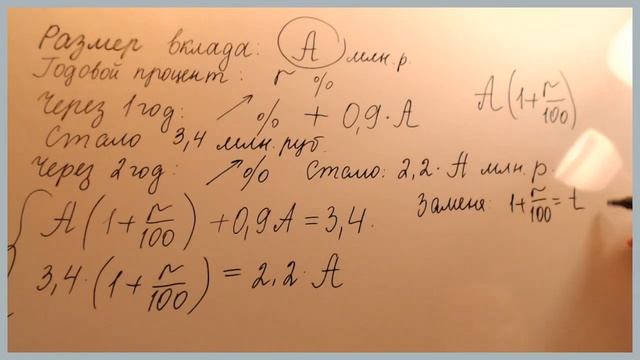 Размер вклада: A млн. р.
Годовой процент: r %
A(1+r/100)
Через 1 год: ↗% + 0,9·A
Стало 3,4 млн. руб.
Через 2 год: ↗% Стало: 2,2·A млн. р.
Замена: 1+r/100=t
A(1+r/100)+0,9A=3,4.
3,4·(1+r/100)=2,2·A